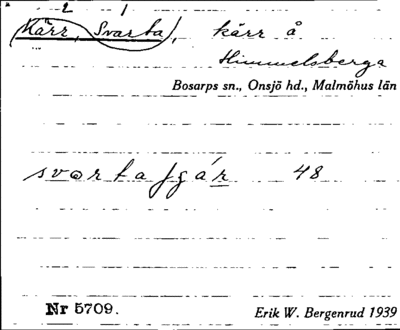 2 1
Kärr, Svarta, kärr å
Himmelsberga
Bosarps sn., Onsjö hd., Malmöhus län
48
Nr 5709.
Erik W. Bergenrud 1939